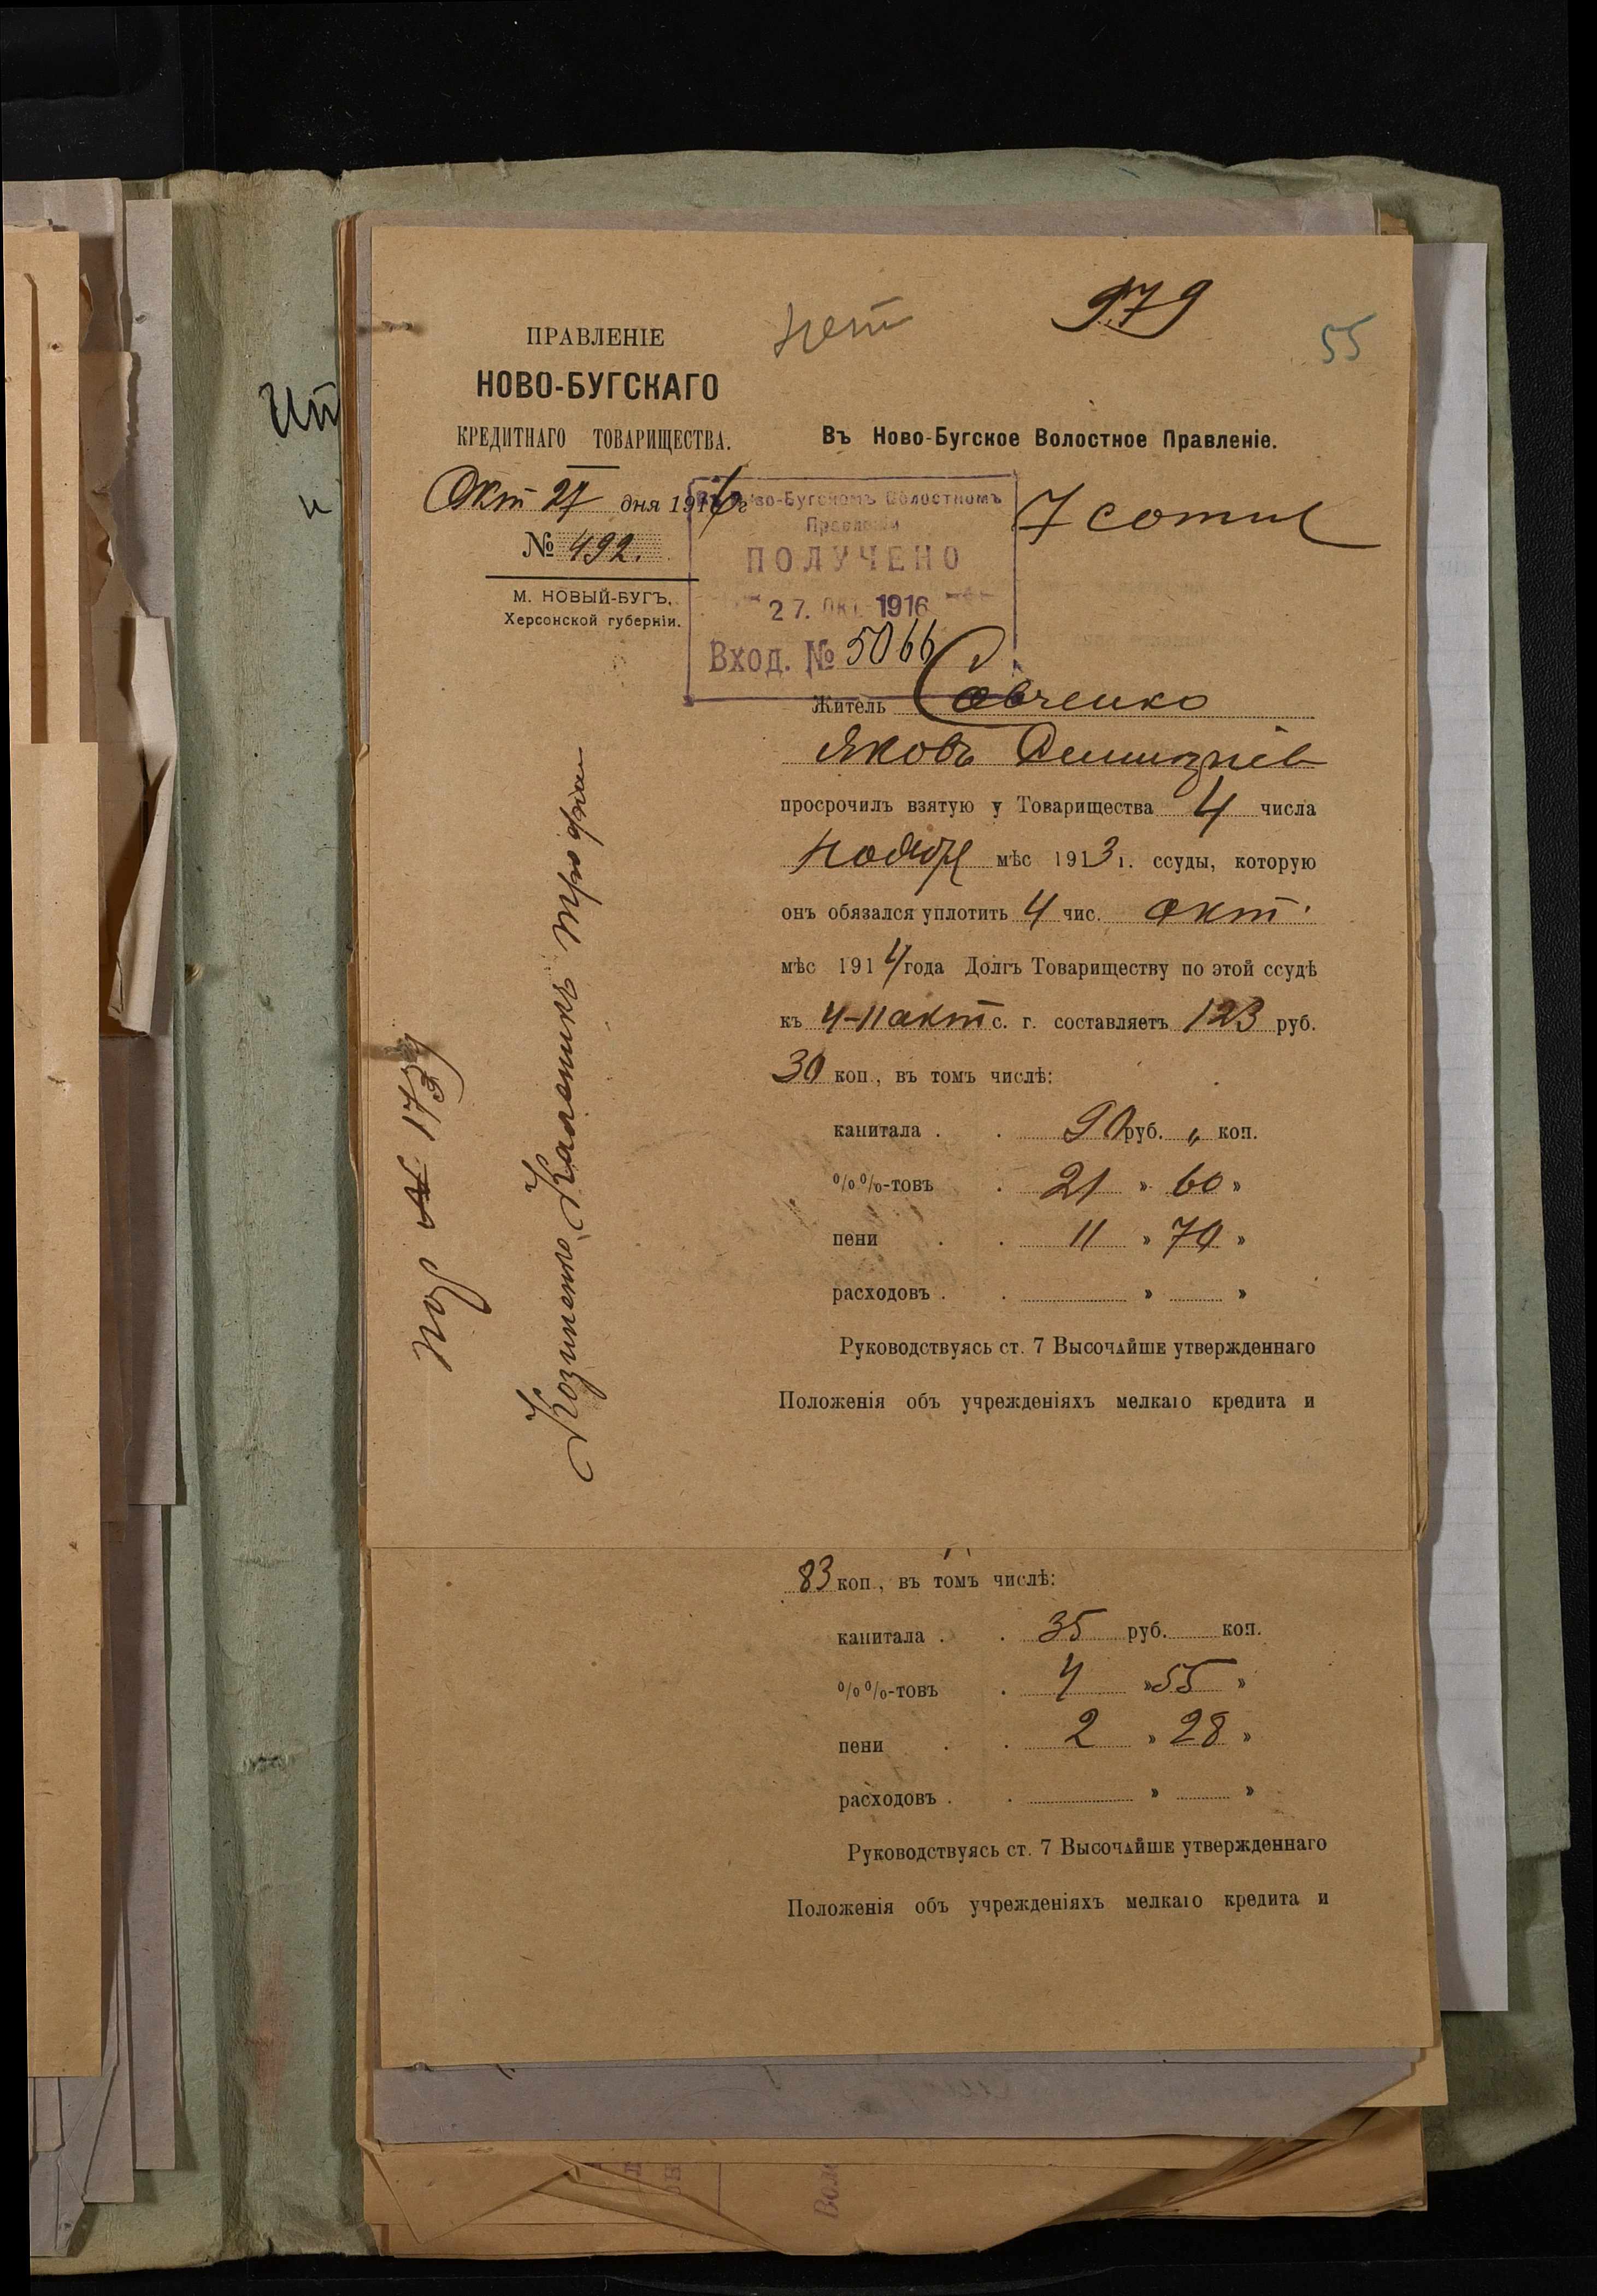 979
нет
55
ПРАВЛЕНІЕ
НОВО-БУГСКАГО
КРЕДИТНАГО ТОВАРИЩЕСТВА.
Окт 27 дня 1916 г
№ 492.
М. НОВЫЙ-БУГЪ,
Херсонской губерніи.
Въ Ново-Бугское Волостное Правленіе.
7 сотни
Въ Ново-Бугскомъ Волостномъ
Правленіи
ПОЛУЧЕНО
27. ОКТ. 1916
Вход. № 5066
Житель Савченко
Яковъ
просрочилъ взятую у Товарищества 4 числа
ноября мѣс 1913 г. ссуды, которую
онъ обязался уплотить 4 чис. окт.
мѣс 1914 года Долгъ Товариществу по этой ссудѣ
къ 4-11 окт с. г. составляетъ 123 руб.
30 коп., въ томъ числѣ:
капитала . . 90 руб. „ коп.
%%-товъ . 21 » 60 »
пени . . 11 » 70 »
расходовъ . . » »
Руководствуясь ст. 7 Высочайше утвержденнаго
Положенія объ учрежденіяхъ мелкаго кредита и
Козиненко, Калетникъ Трофим
пор № 1739
83 коп., въ томъ числѣ:
капитала . . 35 руб. коп.
%%-товъ . 4 » 55 »
пени . . 2 » 28 »
расходовъ . . » »
Руководствуясь ст. 7 Высочайше утвержденнаго
Положенія объ учрежденіяхъ мелкаго кредита и